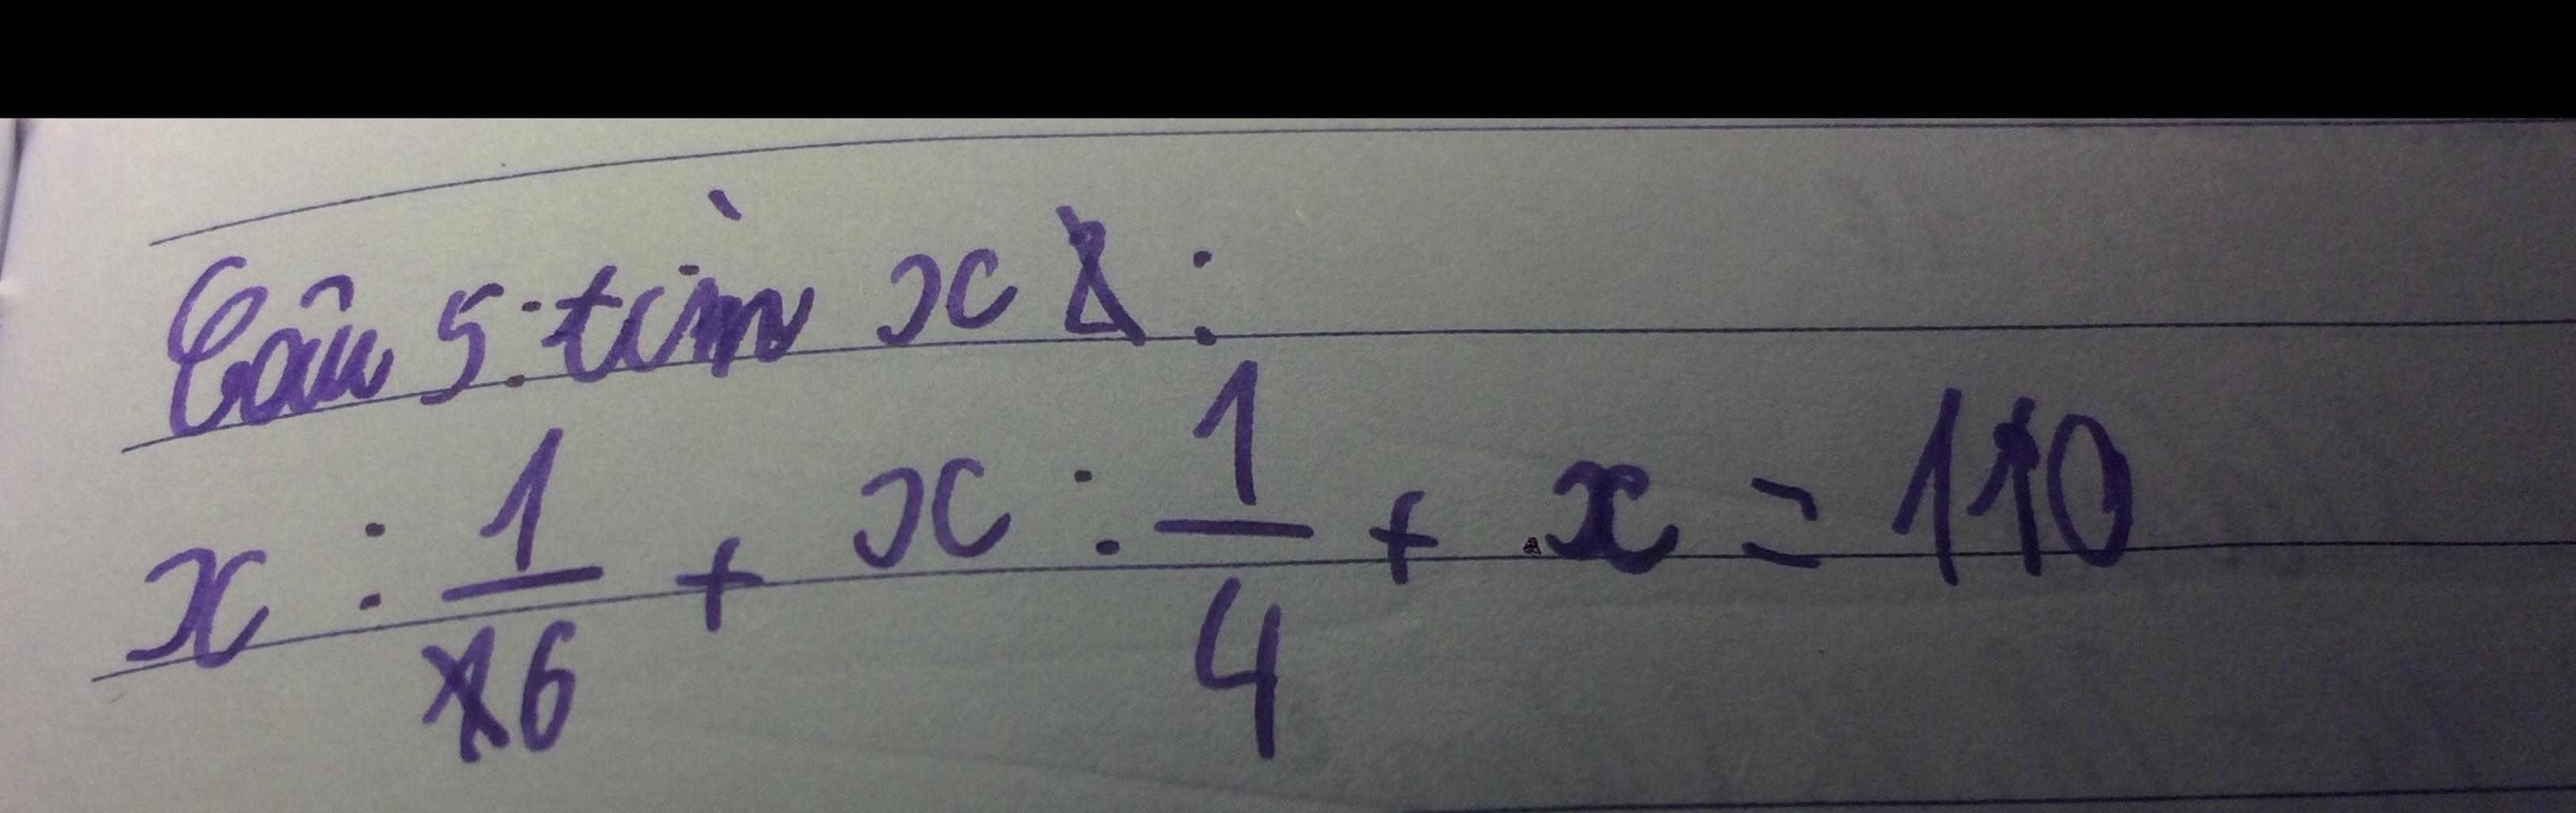 Câu 5: tìm x :
x : 1/6 + x : 1/4 + x = 110